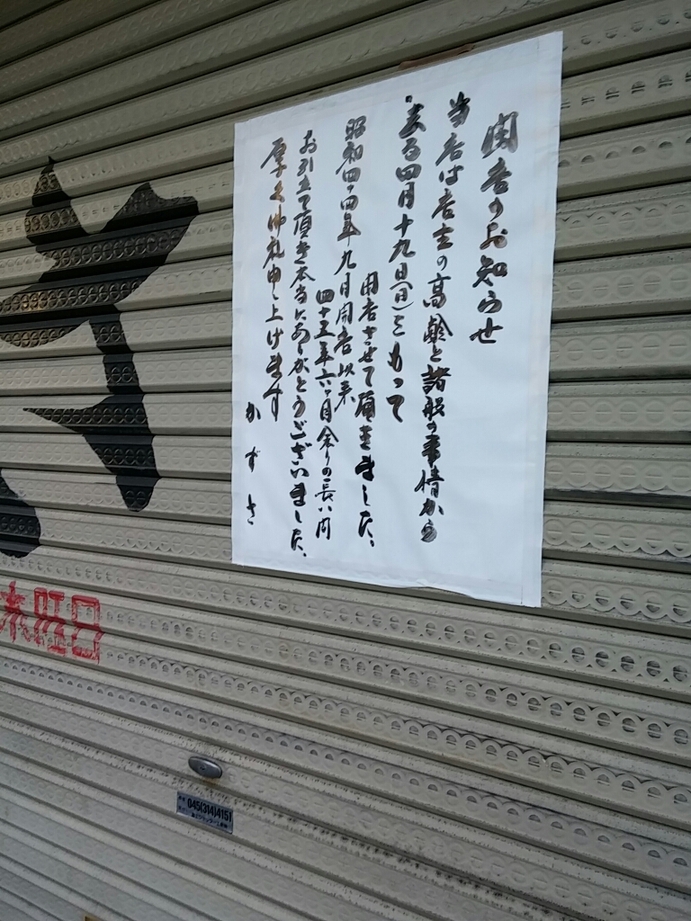 閉店のお知らせ
当店は店主の高齢と諸般の事情から
来る四月十九日(日)をもって
閉店させて頂きました。
昭和四十四年九月開店以来、
四十五年六ヶ月余りの長い間
お引立て頂き本当にありがとうございました。
厚く御礼申し上げます
かずさ
木旺日
045(314)4151